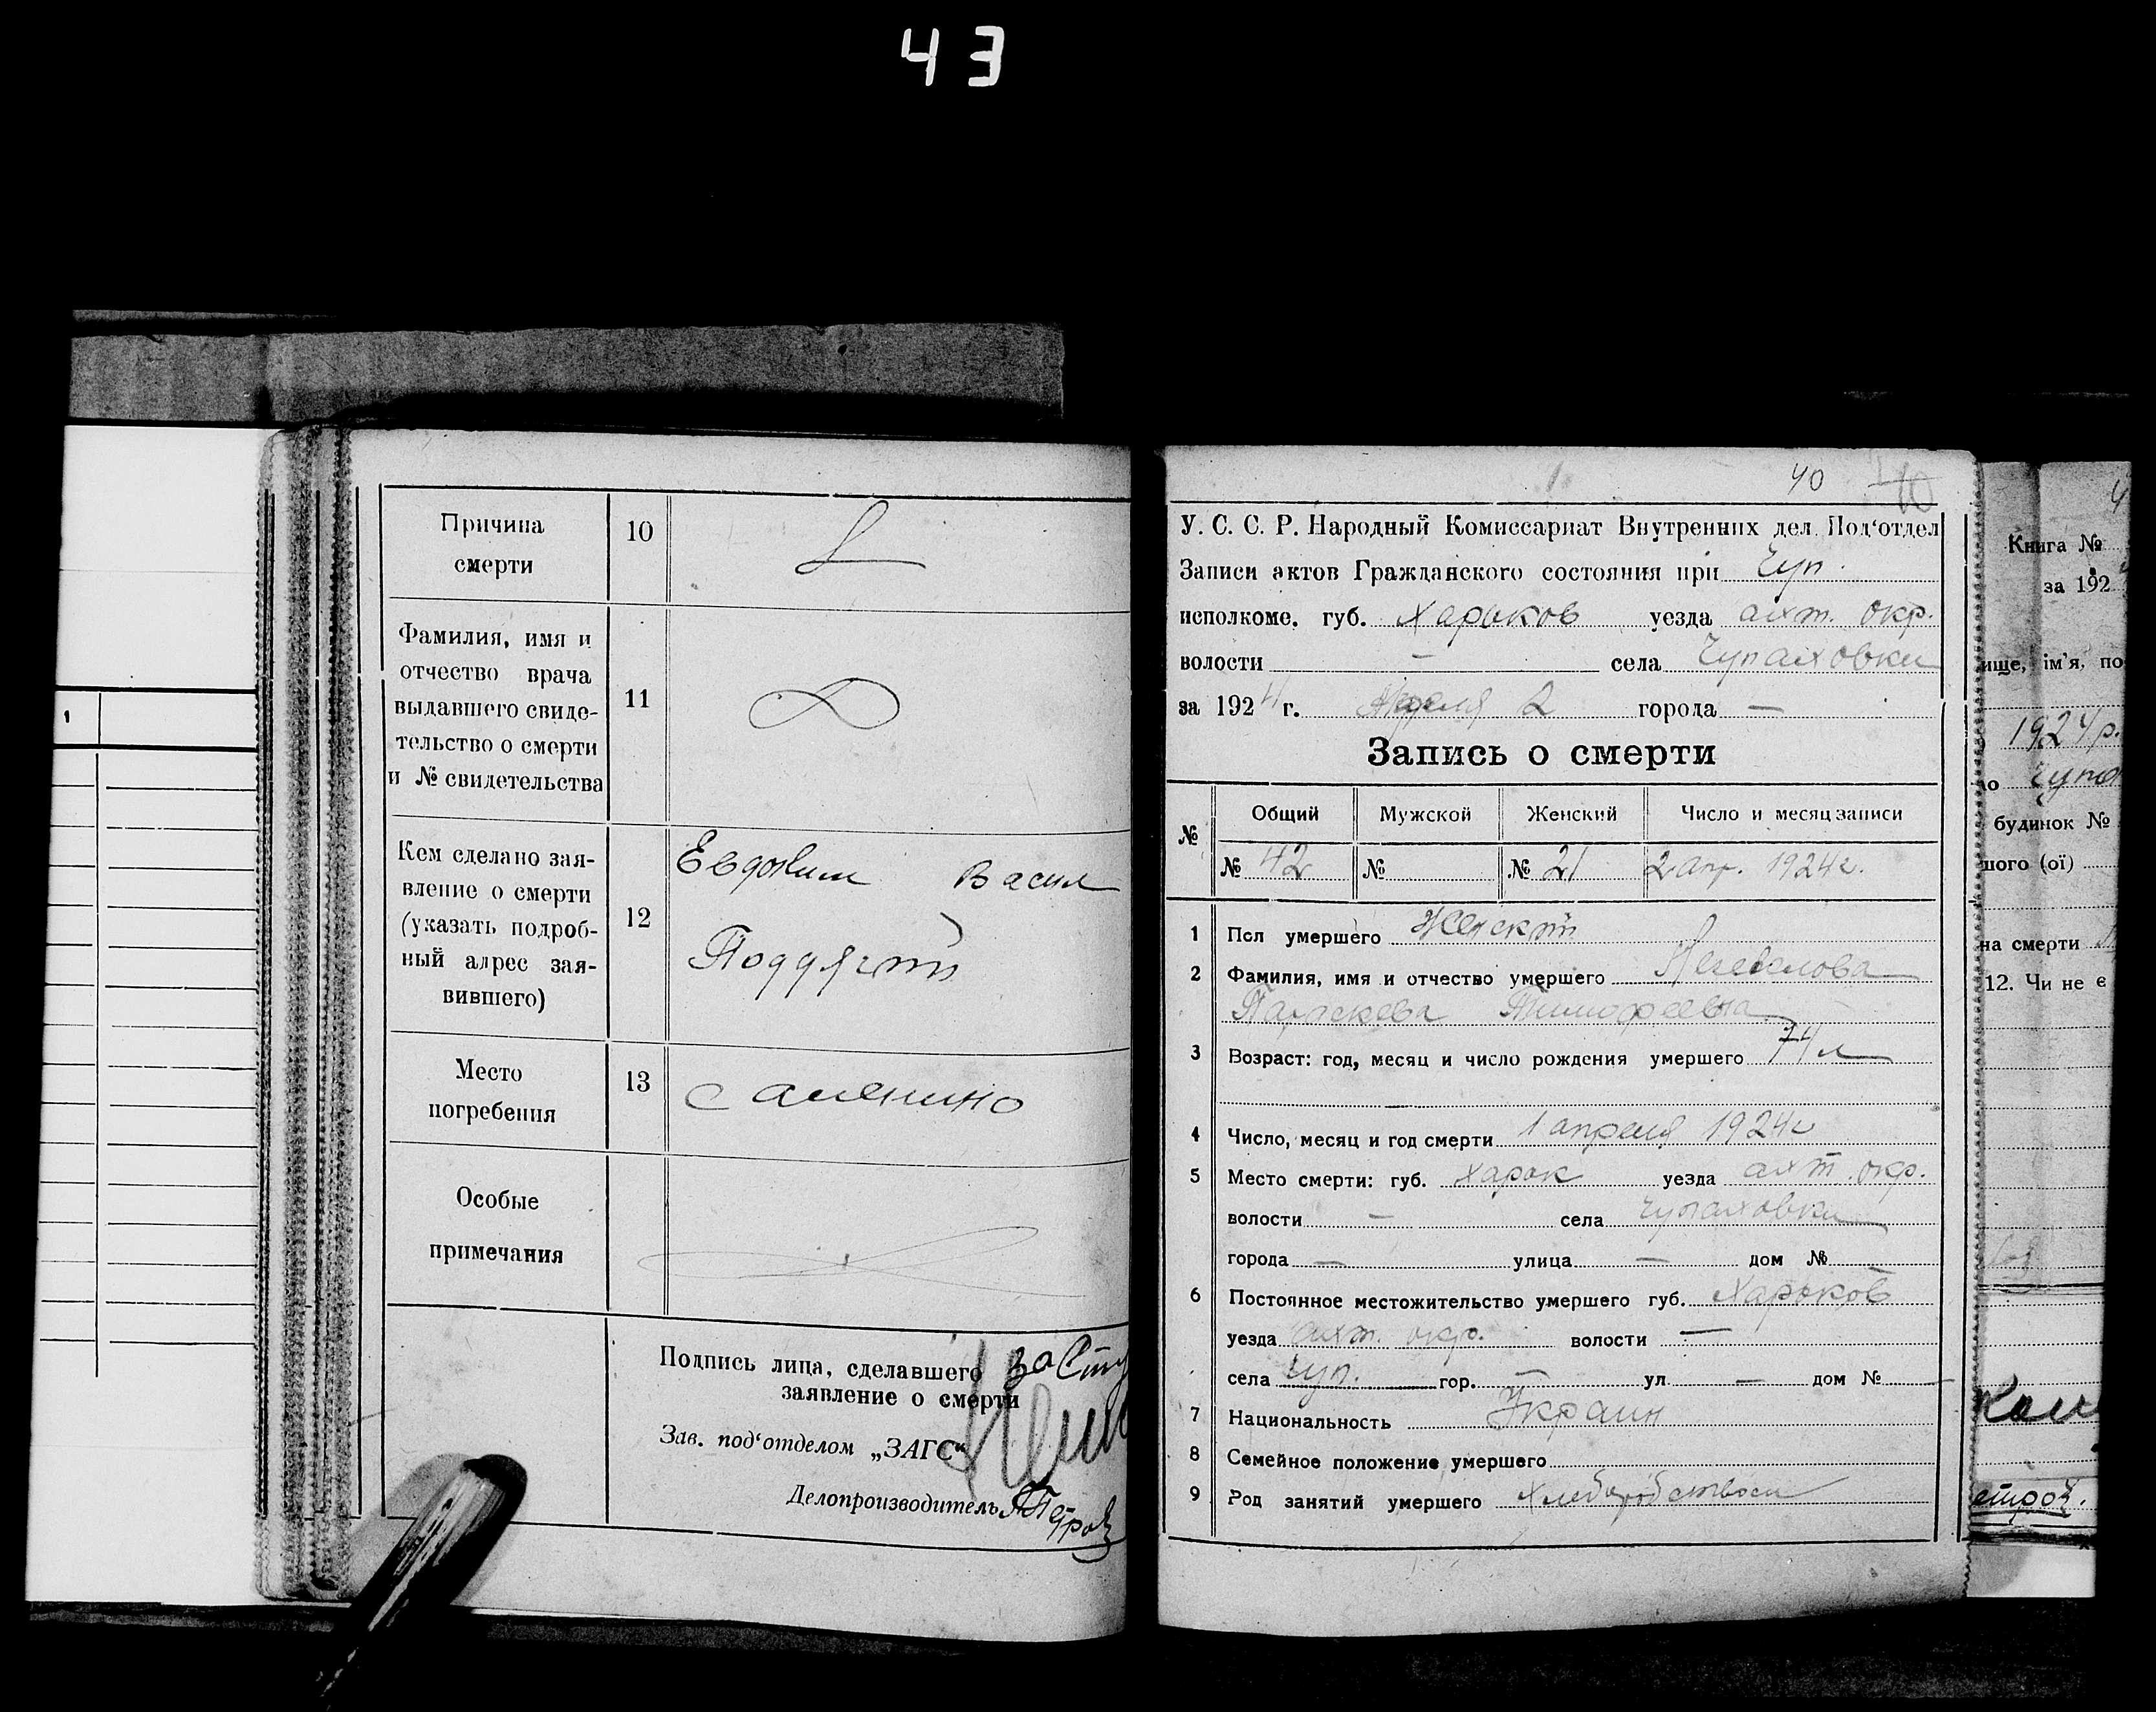 43
1
Причина
смерти
10
Фамилия, имя и
отчество врача
выдавшего свиде-
тельство о смерти
и № свидетельства
11
Кем сделано зая-
вление о смерти
(указать подроб-
ный адрес зая-
вившего)
12
Евдоким Васил
Поддягий
Место
погребения
13
Особые
примечания
Подпись лица, сделавшего
заявление о смерти
Зав. под'отделом „ЗАГС“
Делопроизводитель Петров
40
10
У. С. С. Р. Народный Комиссариат Внутренних дел. Под'отдел
Записи актов Гражданского состояния при Чуп.
исполкоме. губ. Харьков уезда ахт. окр.
волости — села Чупаховки
за 1924 г. Апреля 2 города —
Запись о смерти
№ Общий Мужской Женский Число и месяц записи
№ 42 № № 21 2 апр. 1924 г.
1 Пол умершего Женский
2 Фамилия, имя и отчество умершего
Параскева Тимофеевна
3 Возраст: год, месяц и число рождения умершего 74 л
4 Число, месяц и год смерти 1 апреля 1924 г
5 Место смерти: губ. Харьк уезда ахт. окр.
волости — села Чупаховки
города — улица — дом №
6 Постоянное местожительство умершего губ. Харьков
уезда ахт. окр. волости —
села Чуп. гор. — ул — дом №
7 Национальность Украин
8 Семейное положение умершего
9 Род занятий умершего
Книга №
за 192
ище, ім'я, по
1924 р.
будинок №
шого (ої)
на смерти
12. Чи не є